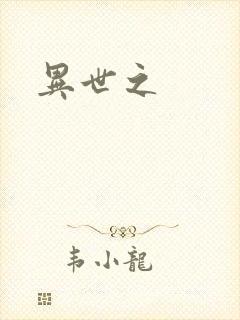 異世之
韦小龍